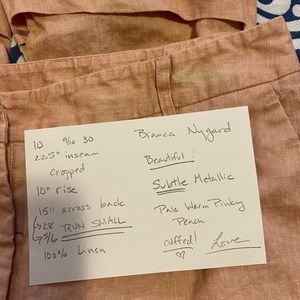 10 9/10 30
22.5" inseam
cropped
10" rise
15" across back
→28 RUN SMALL
→5/6
100% Linen
Bianca Nygard
Beautiful!
Subtle Metallic
Pale Warm Pinky
Peach
cuffed!
♡ Love